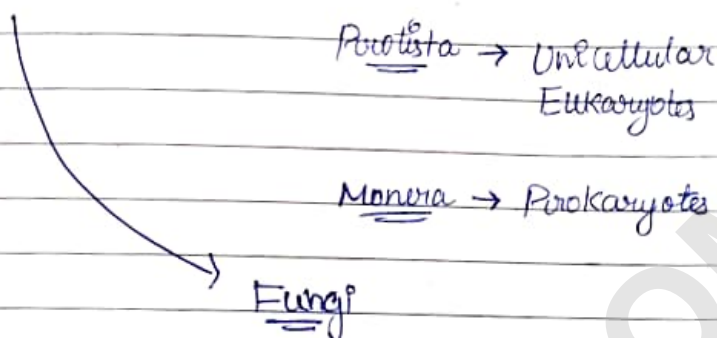 Protista → Unicellular
Eukaryotes
Monera → Prokaryotes
Fungi